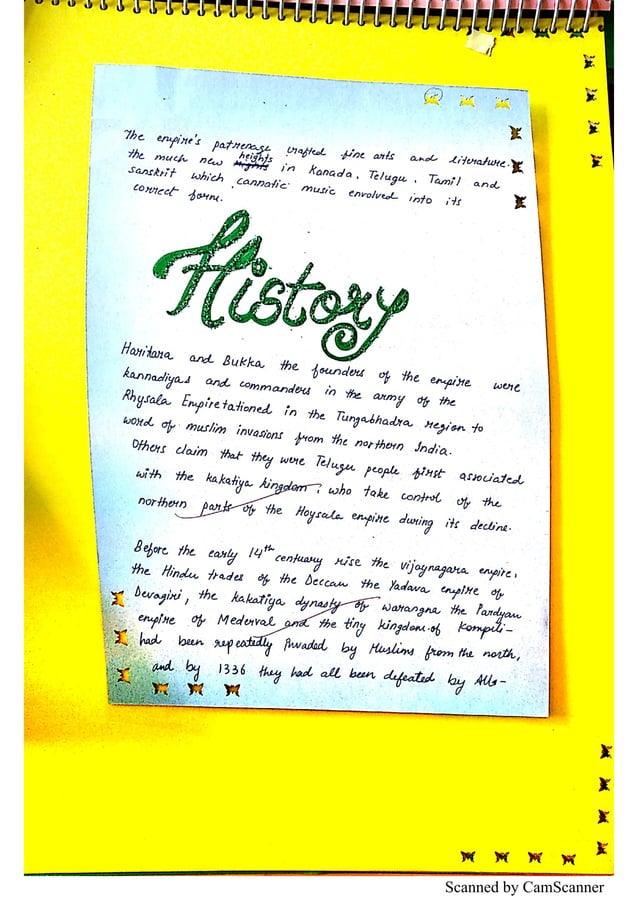 The empire's patrenage crafted fine arts and literature.
the much new heights in Kanada, Telugu, Tamil and
sanskrit which cannatic music envolved into its
correct form.
History
Harihara and Bukka the founders of the empire were
kannadiyas and commanders in the army of the
Rhysala Empiretationed in the Tungabhadra region to
word of muslim invasions from the northern India.
Others claim that they were Telugu people first associated
with the kakatiya kingdom, who take control of the
northern parts of the Hoysala empire during its decline.
Before the early 14th centuary rise the vijaynagara empire,
the Hindu trades of the Deccan the Yadava empire of
Devagiri, the kakatiya dynasty of warangna the Pandyan
empire of Mederval and the tiny kingdom of Kompili-
had been repeatedly Invaded by Muslims from the north,
and by 1336 they had all been defeated by Alla-
Scanned by CamScanner